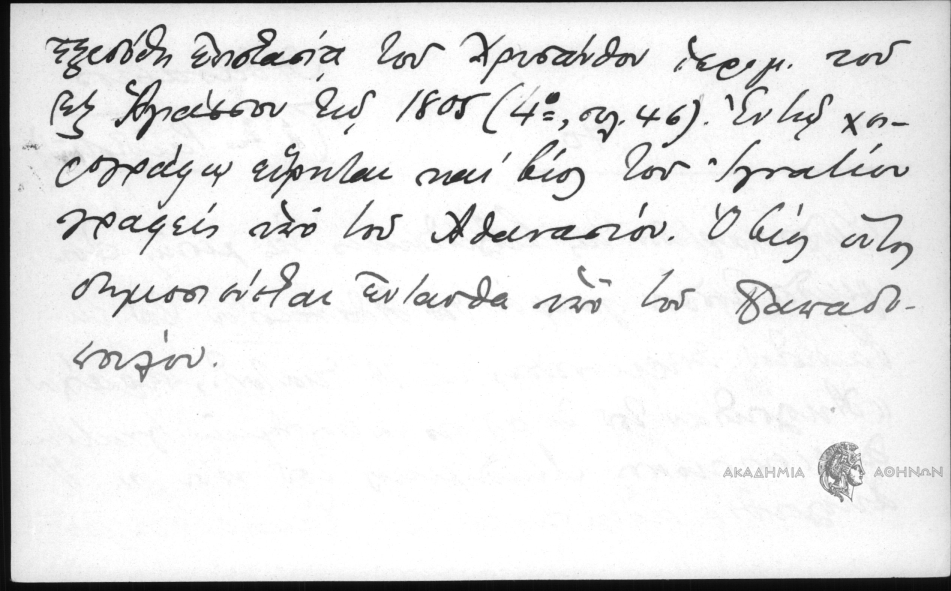 ἐξεδόθη ἐπιστασίᾳ τοῦ Χρυσάνθου ἱερομ. τοῦ
ἐξ Ἀγιάσσου τῷ 1805 (4ον, σελ. 46). Ἐν τῷ χει-
ρογράφῳ εὕρηται καὶ βίος τοῦ Ἰγνατίου
γραφεὶς ὑπὸ τοῦ Ἀθανασίου. Ὁ βίος οὗτος
δημοσιεύεται ἐνταῦθα ὑπὸ τοῦ Παπαδο-
πούλου.
ΑΚΑΔΗΜΙΑ ΑΘΗΝΩΝ